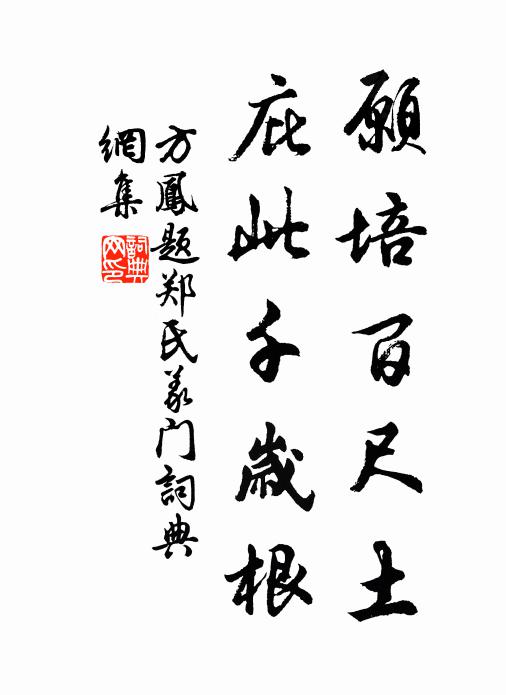 願培百尺土
庇此千歲根
方鳳題郑氏義门詞典
網集
詞典網印